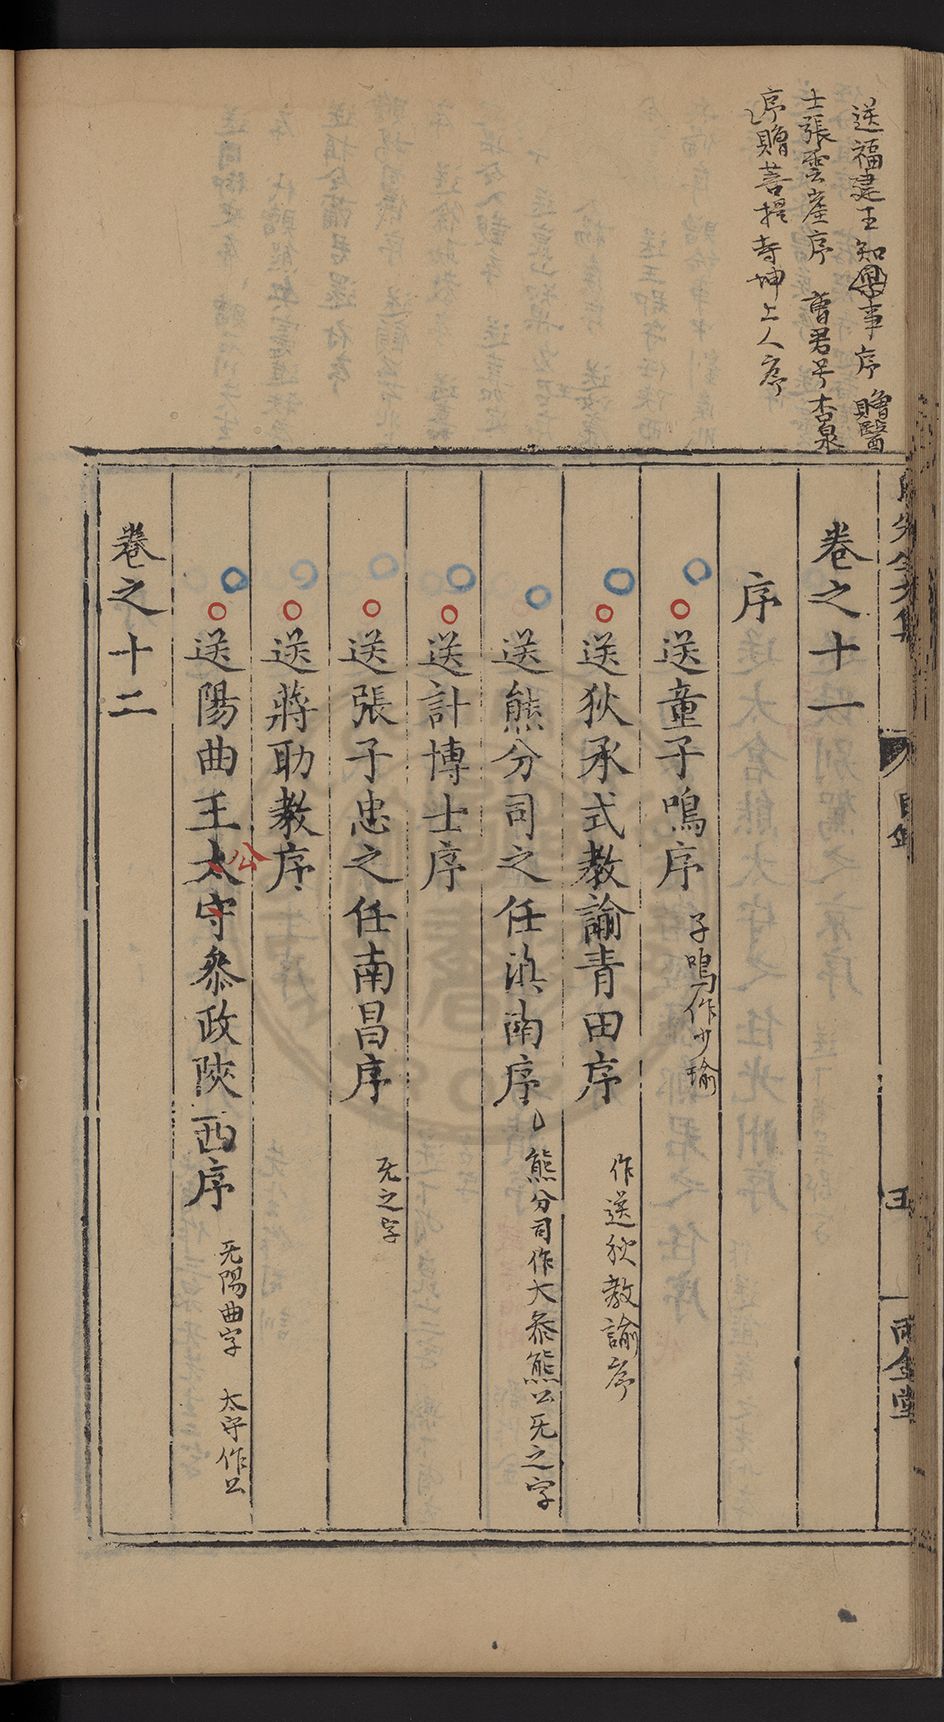 送福建王知縣事序 贈醫
士張雲崖序 曹君号杏泉
序贈菩提寺坤上人序
卷之十一
序
送童子鳴序 子鳴作少瑜
送狄承式教諭青田序 作送狄教諭序
送熊分司之任滇南序 熊分司作大叅熊公旡之字
送計博士序
送張子忠之任南昌序 旡之字
送蔣助教序
送陽曲王太守叅政陝西序 旡陽曲字 太守作公
公
卷之十二
目錄
五
雨金堂